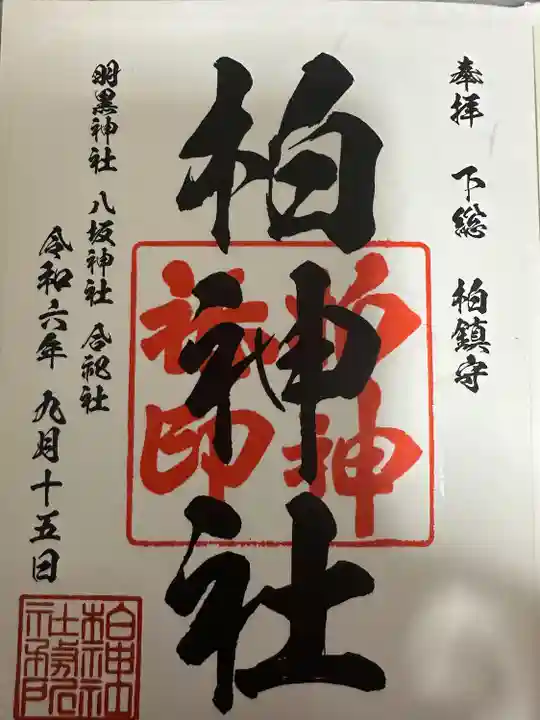 奉拝 下総 柏鎮守
柏神社
柏神
社印
羽黒神社 八坂神社 合祀社
令和六年 九月十五日
柏神社
社務所